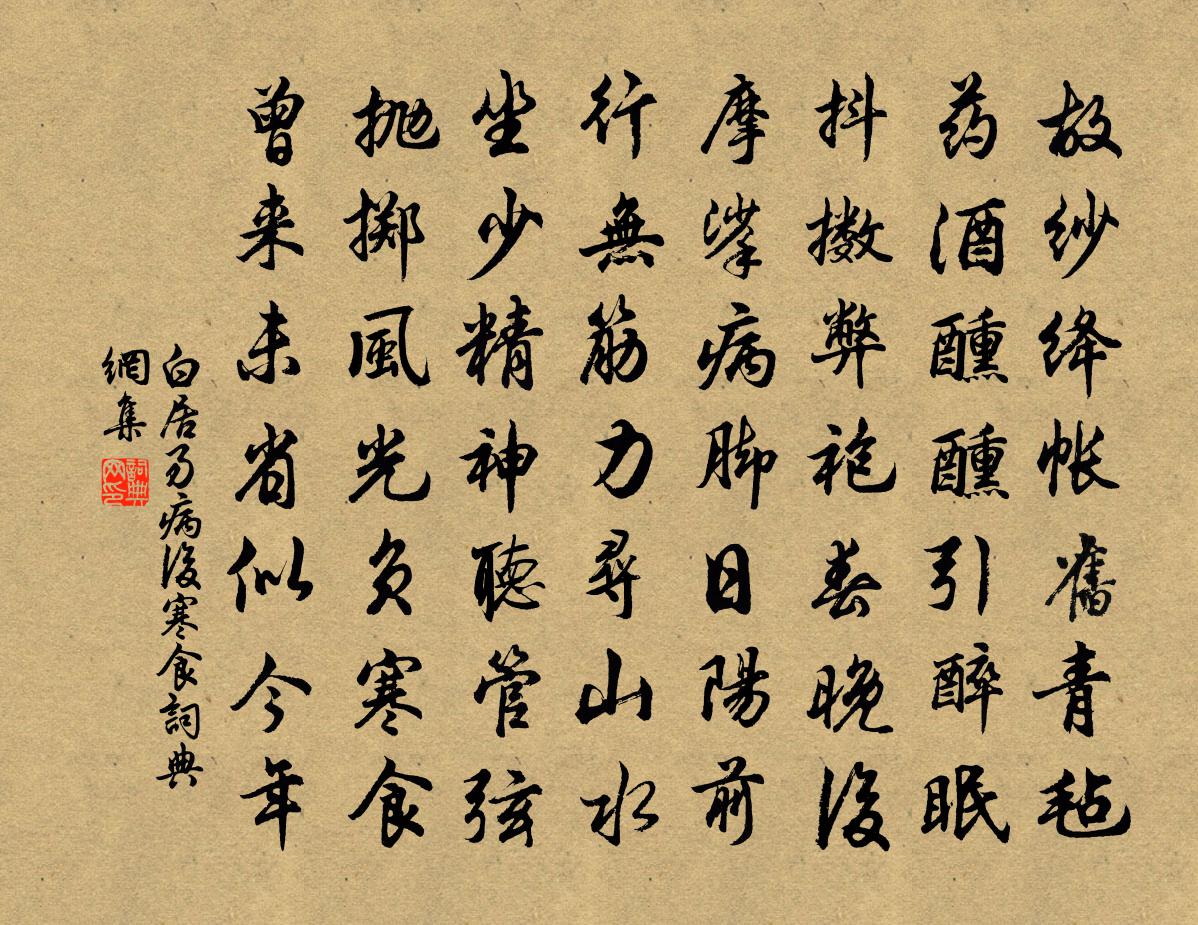 故纱绛帐舊青毡
药酒醺醺引醉眠
抖擞弊袍春晚後
摩挲病脚日陽前
行無筋力尋山水
坐少精神聽管弦
抛掷風光负寒食
曾来未省似今年
白居易病後寒食詞典
網集
詞典
网印